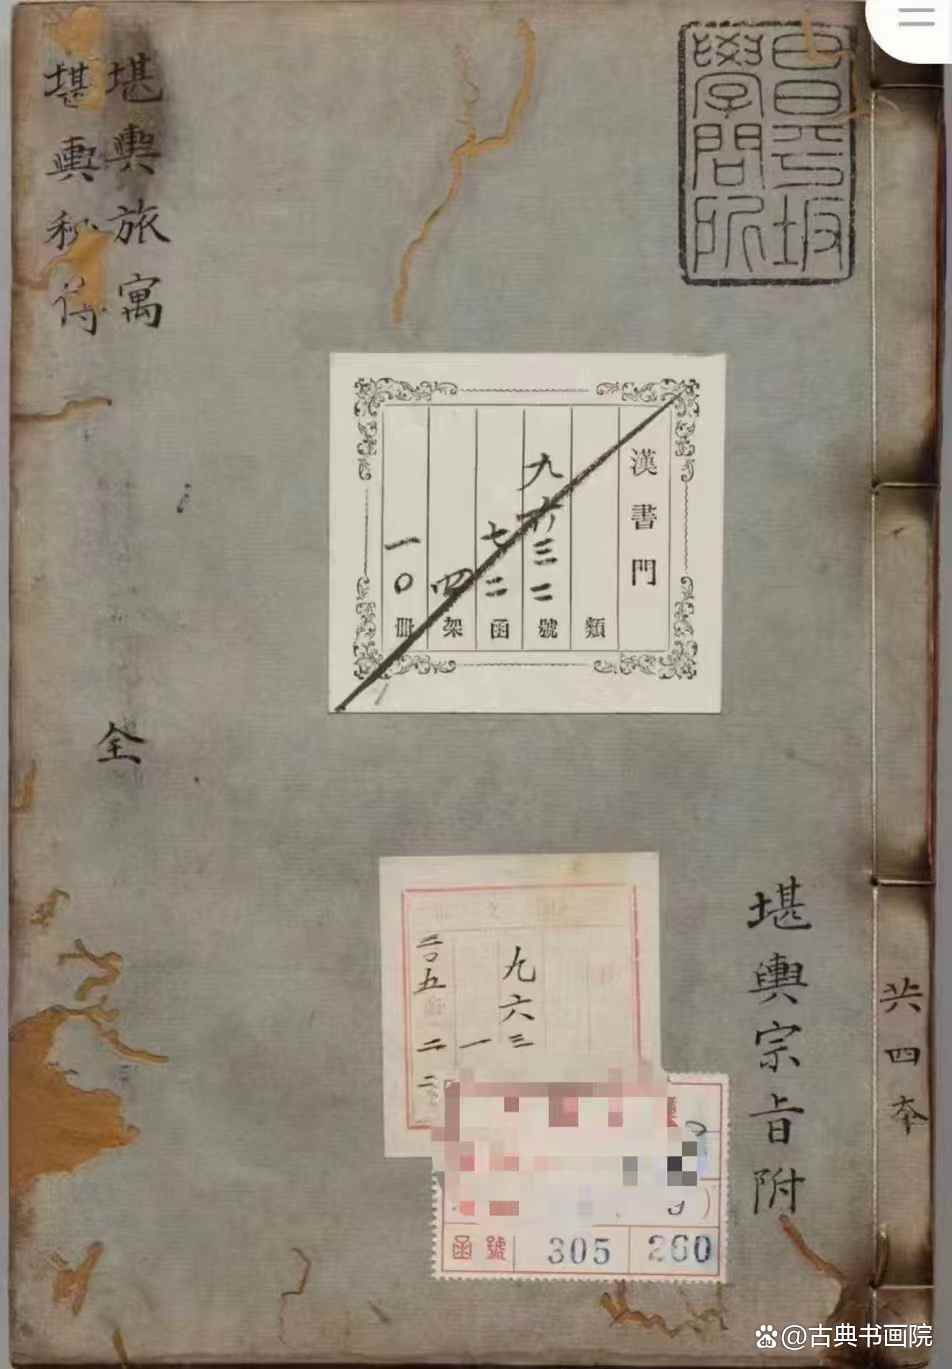 昌平坂
學問所
堪輿旅寓
堪輿秘
全
漢書門
類
九六三二號
七二函
四架
一〇冊
九六三
一
二〇五
函號 305 260
堪輿宗旨附
共四本
@古典书画院